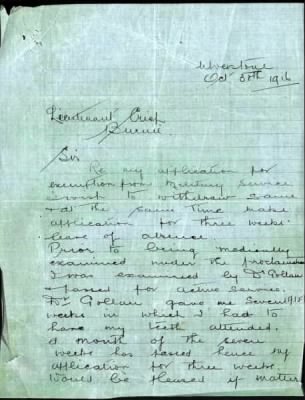 Oct 30th 1916
Lieutenant Crisp
Sir
Re my application for
exemption from Military Service
I wish to withdraw same
& at the same time make
application for three weeks
leave of absence.
Prior to being medically
examined under the proclamation
I was examined by Dr Gollan
& passed for active service.
Dr Gollan gave me seven
weeks in which I had to
have my teeth attended.
A month of the seven
weeks has passed hence my
application for three weeks.
Would be pleased if matter